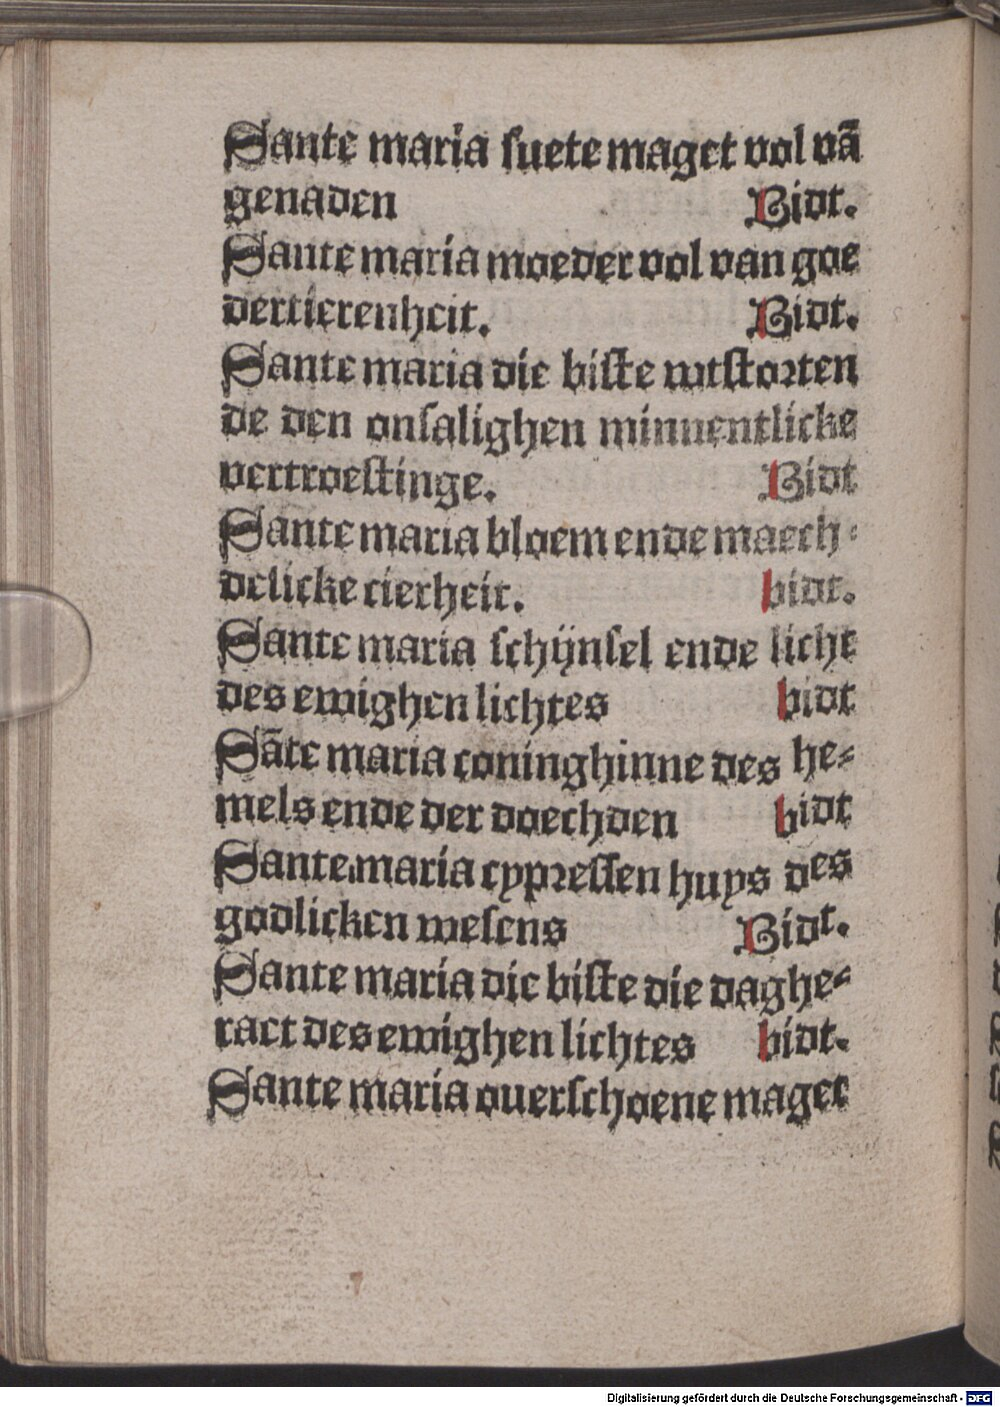 Sante maria suete maget vol vā
genaden Bidt.
Sante maria moeder vol van goe
dertierenheit. Bidt.
Sante maria die biste wtstorten
de den onsalighen minnentlicke
vertroestinge. Bidt
Sante maria bloem ende maech-
delicke cierheit. bidt.
Sante maria schijnsel ende licht
des ewighen lichtes bidt
Sāte maria coninghinne des he-
mels ende der doechden bidt
Sante maria cypressen huys des
godlicken wesens Bidt.
Sante maria die biste die daghe-
raet des ewighen lichtes bidt.
Sante maria ouerschoene maget
Digitalisierung gefördert durch die Deutsche Forschungsgemeinschaft - DFG